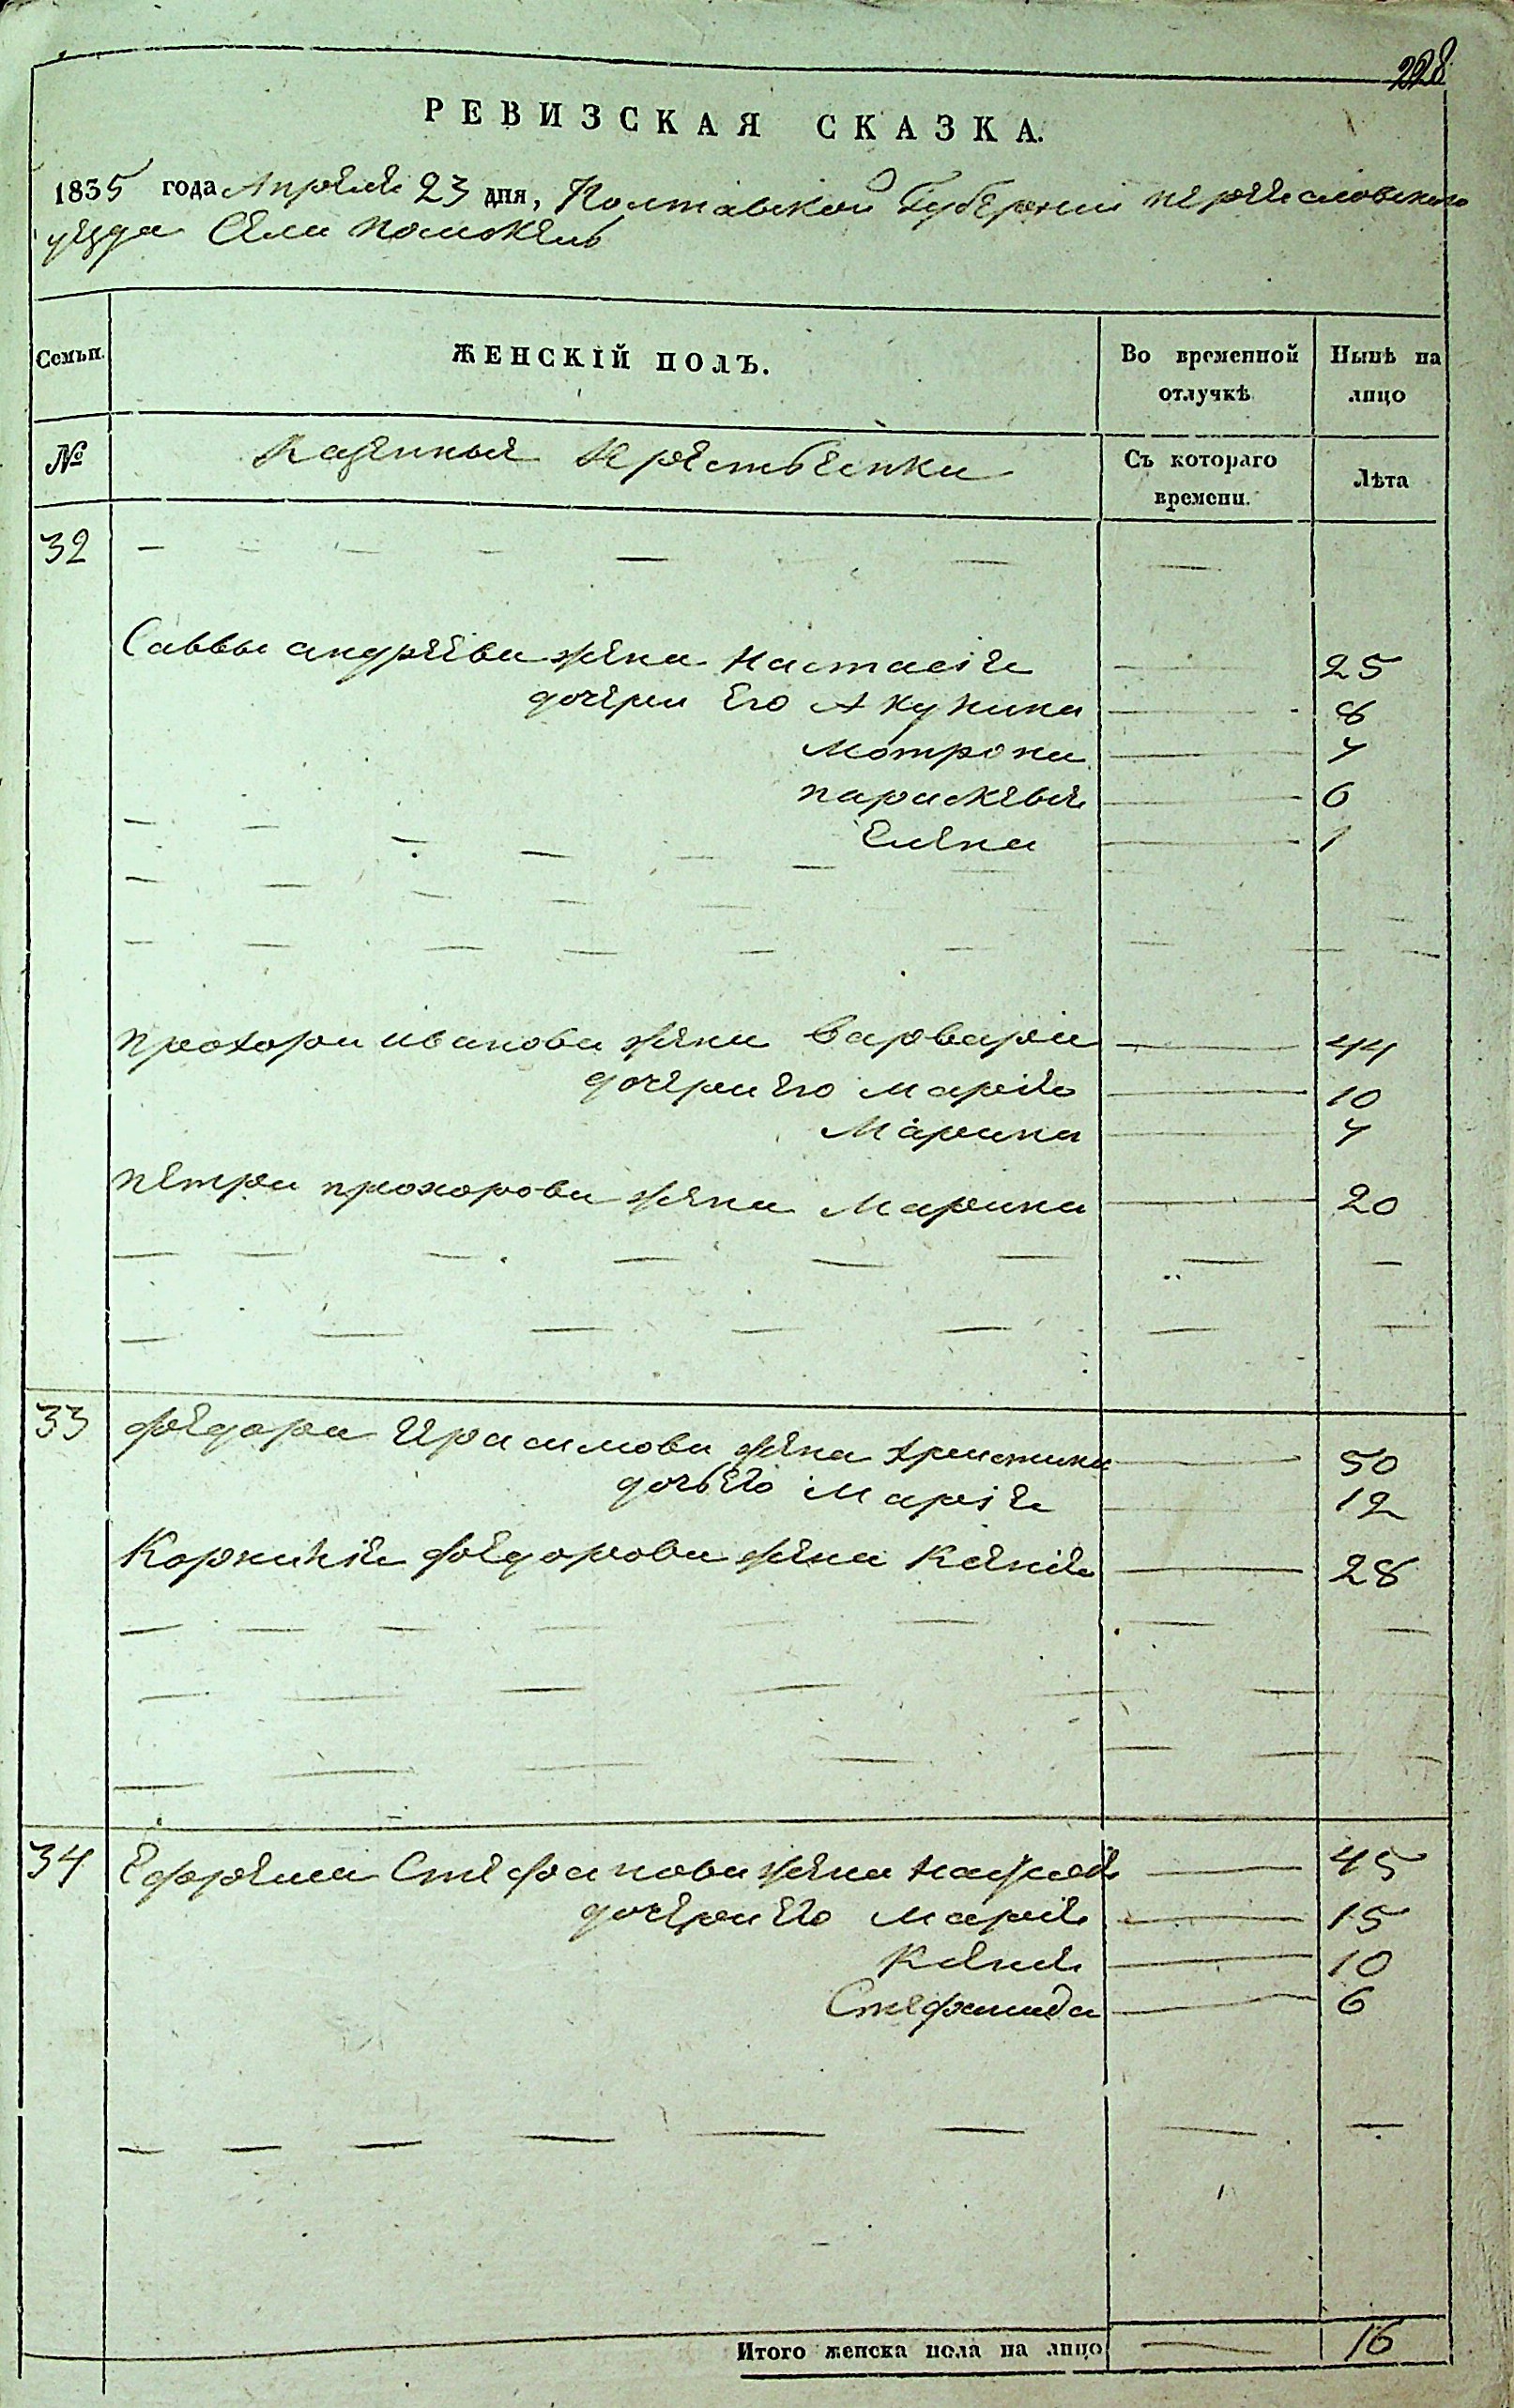 228
РЕВИЗСКАЯ СКАЗКА.
1835 года Апреля 23 дня, Полтавской Губернии переясловского
уезда Села Помоклъ
Семьи. ЖЕНСКІЙ ПОЛЪ. Во временной отлучкѣ Нынѣ на лицо
№ Казенные Крестьянки Съ котораго времени. Лѣта
32
Саввы андреева жена Настасія 25
дочери его Акулина 8
Мотрона 7
параскевия 6
Елена 1
прохора иванова жена Варвара 44
дочери его марія 10
Марина 7
петра прохорова жена Марина 20
33 федора Ирасимова жена Христина 50
дочь его Марія 12
Корнилія федорова жена Ксенія 28
34 Ефрема Стефанова жена 45
дочери его Марія 15
Ксения 10
Стефанида 6
Итого женска пола на лицо 16